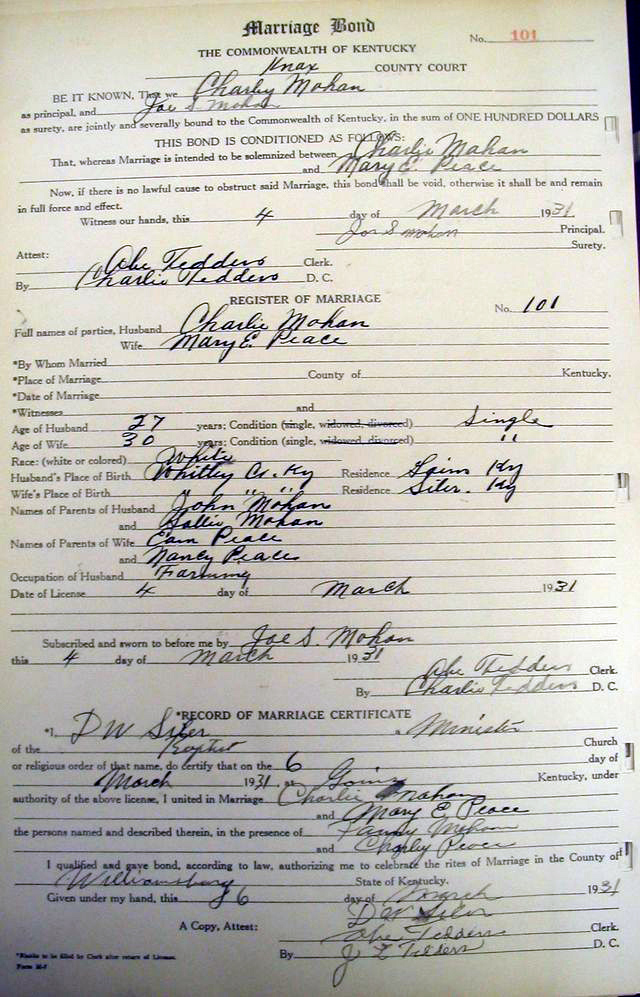 Marriage Bond
No. 101
THE COMMONWEALTH OF KENTUCKY
Knox COUNTY COURT
BE IT KNOWN, That we Charley Mohan
as principal, and Joe S. Mohan
as surety, are jointly and severally bound to the Commonwealth of Kentucky, in the sum of ONE HUNDRED DOLLARS
THIS BOND IS CONDITIONED AS FOLLOWS:
That, whereas Marriage is intended to be solemnized between Charlie Mohan
and Mary E. Peace
Now, if there is no lawful cause to obstruct said Marriage, this bond shall be void, otherwise it shall be and remain
in full force and effect.
Witness our hands, this 4 day of March 1931
Joe S Mohan Principal.
Surety.
Attest: Abe Tedders Clerk.
By Charlie Tedders D. C.
REGISTER OF MARRIAGE
No. 101
Full names of parties, Husband Charlie Mohan
Wife Mary E. Peace
*By Whom Married
*Place of Marriage County of Kentucky.
*Date of Marriage
*Witnesses and
Age of Husband 27 years; Condition (single, widowed, divorced) Single
Age of Wife 30 years; Condition (single, widowed, divorced) "
Race: (white or colored) White
Husband's Place of Birth Whitley Co. Ky Residence Ky
Wife's Place of Birth " " " Residence Siler. Ky
Names of Parents of Husband John Mohan
and Sallie Mohan
Names of Parents of Wife Cam Peace
and Nancy Peace
Occupation of Husband Farming
Date of License 4 day of March 1931
Subscribed and sworn to before me by Joe S. Mohan
this 4 day of March 1931
Abe Tedders Clerk.
By Charlie Tedders D. C.
*RECORD OF MARRIAGE CERTIFICATE
*I, D W Siler a Minister
of the Baptist Church
or religious order of that name, do certify that on the 6 day of
March 1931, at Kentucky, under
authority of the above license, I united in Marriage Charlie Mohan
and Mary E Peace
the persons named and described therein, in the presence of Mohan
and Charley Peace
I qualified and gave bond, according to law, authorizing me to celebrate the rites of Marriage in the County of
Williamsburg State of Kentucky.
Given under my hand, this 6 day of March 1931
D W Siler
A Copy, Attest: Abe Tedders Clerk.
By J L Tedders D. C.
*Blanks to be filled by Clerk after return of License.